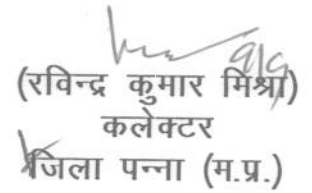 9/9
(रविन्द्र कुमार मिश्रा)
कलेक्टर
जिला पन्ना (म.प्र.)